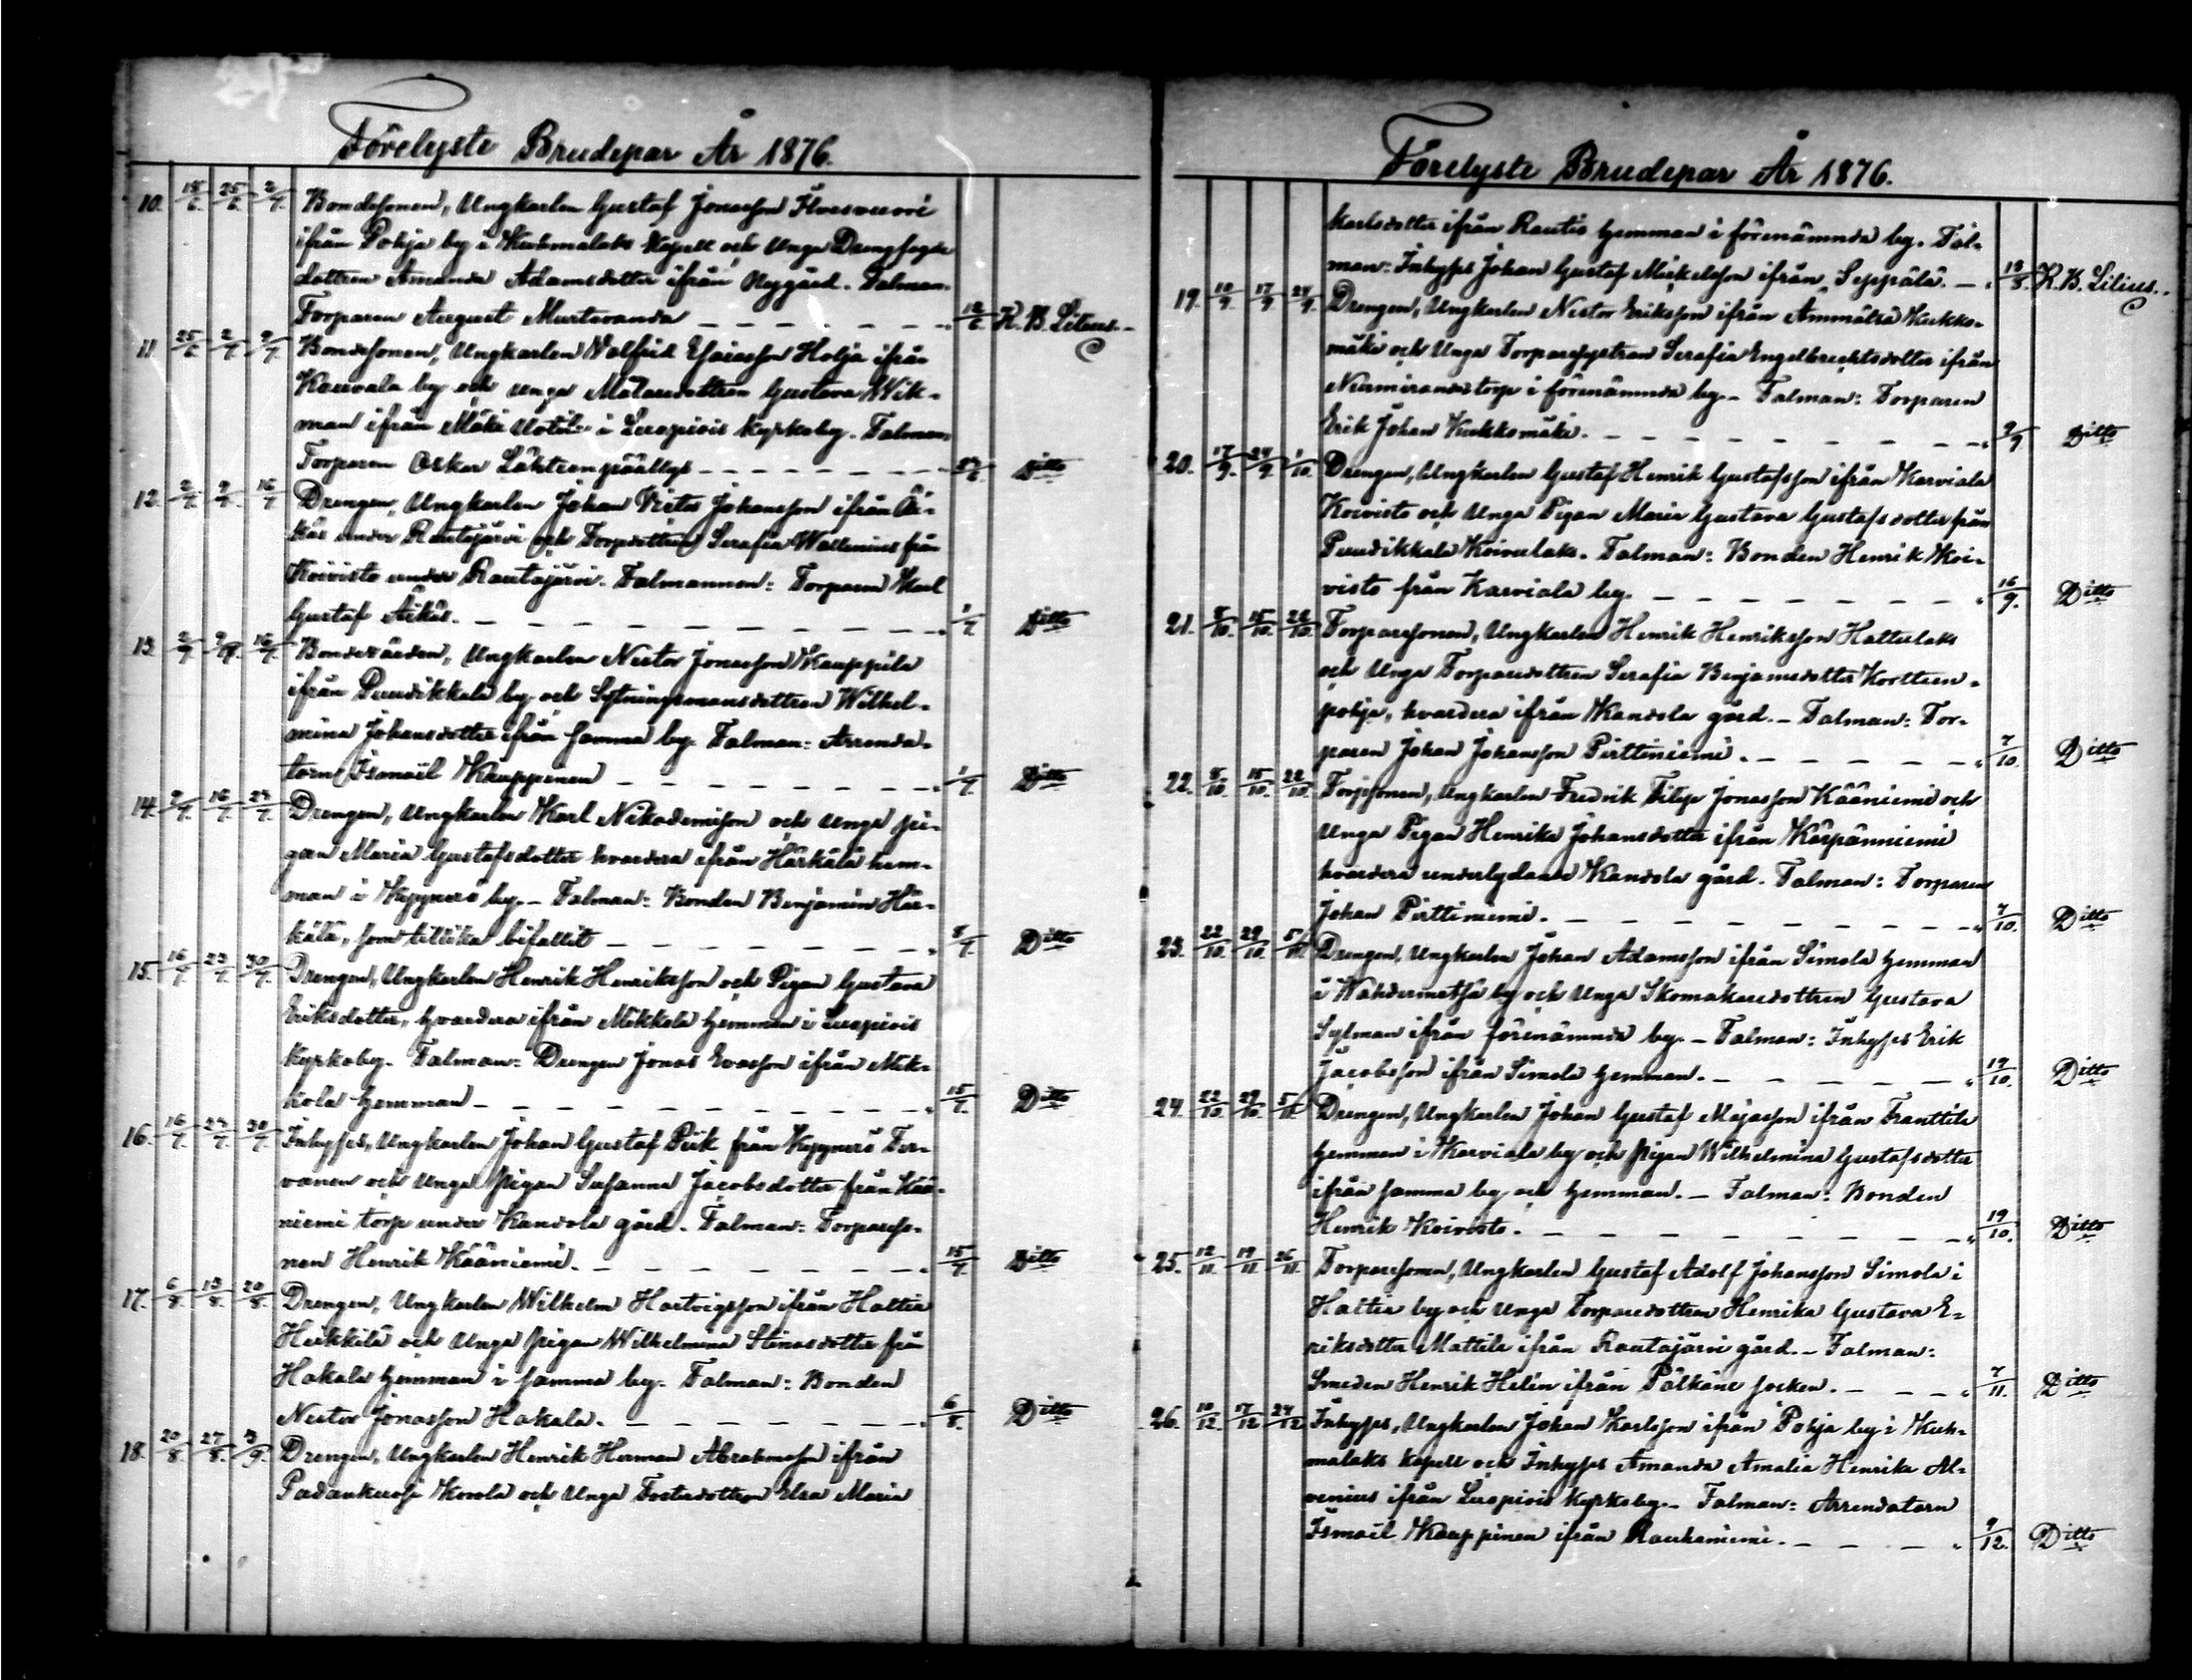 Förelyste Brudepar År 1876.
10. 18/6. 25/6 2/7. Bondesonen, Ungkarlen Gustaf Jonasson Ilvesvuori
ifrån Pohja by i Kuhmalaks Kapell och Unga Drengfogde
dottren Amanda Adamsdotter ifrån Nygård. Talman.
Torparen August Murteranda 12/6 K. B. Lilius
11 25/6 2/7 9/7. Bondesonen, Ungkarlen Walfrid Esaiasson Holja ifrån
Karvala by och unga Målaredottren Gustava Wik-
man ifrån Mäki Uotila i Luopiois Kyrkoby. Talman
Torparen Oskar Lähteen 24/6 Ditto
12. 2/7 9/7. 16/7 Drengen, Ungkarlen Johan Victor Johansson ifrån Äi-
käs under Rautajärvi och Torpdottren Serafia Wallenius från
Koivisto under Rautajärvi. Talmannen: Torparen Karl
Gustaf Äikäs. 1/7 Ditto
13 2/7 9/7. 16/7. Bonden, Ungkarlen Nestor Jonasson Kauppila
ifrån Puudikkala by och Sytningsmansdottren Wilhel-
mina Johansdotter ifrån samma by. Talman: Arrenda-
torn Ismaël Kauppinen 1/7. Ditto
14. 9/7 16/7 24/7 Drengen, Ungkarlen Karl Nikodemisson och unga pi-
gan Maria Gustafsdotter hvardera ifrån Härkälä hem-
man i Kyynärö by. - Talman: Bonden Benjamin Här-
kälä, som tillika bifallit 8/7. Ditto
15. 16/7 23/7 30/7. Drengen, Ungkarlen Henrik Henriksson och Pigan Gustava
Eriksdotter, hvardera ifrån Mikkola hemman i Luopiois
Kyrkoby. Talman: Drengen Jonas Evasson ifrån Mik-
kola hemman 15/7. Ditto
16. 16/7. 24/7. 30/7. Inhyses, Ungkarlen Johan Gustaf Piik från Kyynärö Ter-
vanen och unga pigan Susanna Jacobsdotter från Kää-
niemi torp under Kandola gård. Talman: Torpareso-
nen Henrik Kääniemi. 15/7. Ditto
17. 6/8. 13/8. 20/8. Drengen, Ungkarlen Wilhelm Hartvigsson ifrån Haltia
Heikkilä och Unga pigan Wilhelmina Stinasdotter från
Hakala hemman i samma by. Talman: Bonden
Nestor Jonasson Hakala. 6/8. Ditto
18. 20/8. 27/8. 3/9. Drengen, Ungkarlen Henrik Herman Abrahamson ifrån
Padankoski Korola och Unga Fosterdottren Elsa Maria
Förelyste Brudepar År 1876.
Karlsdotter ifrån Rautio hemman i förenämnda by. Tal-
man: Inhyses Johan Gustaf Mickelsson ifrån Seppälä. 19/8. K. B. Lilius.
19. 10/9. 17/9 24/9. Drengen, Ungkarlen Nestor Eriksson ifrån Ammätsä Kukko-
mäki och Unga Torparesystran Serafia Engelbrechtsdotter ifrån
Nurmiranda torp i förenämnda by. - Talman: Torparen
Erik Johan Kukkomäki. 9/9 Ditto
20. 17/9. 24/9. 1/10. Drengen, Ungkarlen Gustaf Henrik Gustafsson ifrån Karviala
Koivisto och Unga Pigan Maria Gustava Gustafsdotter från
Puudikkala Koivulaks. Talman: Bonden Henrik Koi-
visto från Karviala by. 16/9. Ditto
21. 8/10. 15/10. 22/10. Torparesonen, Ungkarlen Henrik Henriksson Hattulaks
och Unga Torparedottren Serafia Benjamsdotter Kortteen-
pohja, hvardera ifrån Kandola gård. - Talman: Tor-
paren Johan Johansson Pirttiniemi. 7/10. Ditto
22. 8/10. 15/10. 22/10. Torpsonen, Ungkarlen Fredrik Filip Jonasson Kääniemi och
Unga Pigan Henrika Johansdotter ifrån Kärpänniemi
hvardera underlydande Kandola gård. Talman: Torparen
Johan Pirttiniemi. 7/10. Ditto
23. 22/10. 29/10. 5/11. Drengen, Ungkarlen Johan Adamsson ifrån Simola hemman
i Wahdermetsä by och Unga Skomakaredottren Gustava
Sylman ifrån förenämnda by. - Talman: Inhyses Erik
Jacobsson ifrån Simola hemman. 19/10. Ditto
24. 22/10. 29/10. 5/11. Drengen, Ungkarlen Johan Gustaf Majasson ifrån Franttila
hemman i Karviala by och pigan Wilhelmina Gustafsdotter
ifrån samma by och hemman. - Talman: Bonden
Henrik Koivisto. 19/10. Ditto
25. 12/11. 19/11. 26/11. Torparesonen, Ungkarlen Gustaf Adolf Johansson Simola i
Haltia by och Unga Torparedottren Henrika Gustava E-
riksdotter Mattila ifrån Rautajärvi gård. - Talman:
Smeden Henrik Helin ifrån Pälkäne socken. 7/11. Ditto
26. 10/12. 17/12 24/12 Inhyses, Ungkarlen Johan Karlsson ifrån Pohja by i Kuh-
malaks Kapell och Inhyses Amanda Amalia Henrika Al-
venius ifrån Luopiois Kyrkoby. - Talman: Arrendatorn
Ismaël Kauppinen ifrån Rauhaniemi. 9/12. Ditto